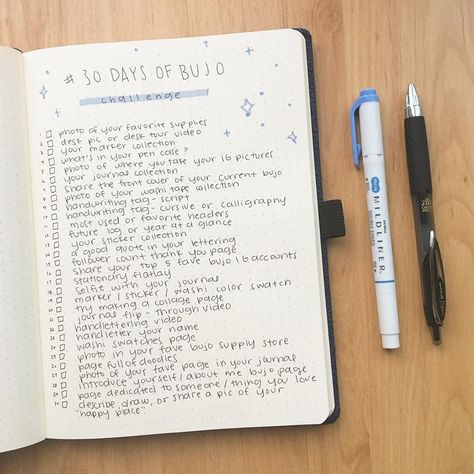 # 30 DAYS OF BUJO
challenge
1 photo of your favorite supplies
2 desk pic or desk tour video
3 your marker collection
4 what's in your pen case?
5 photo of where you take your IG pictures
6 your journal collection
7 share the front cover of your current bujo
8 photo of your washi tape collection
9 handwriting tag - script
10 handwriting tag - cursive or calligraphy
11 most used or favorite headers
12 future log or year at a glance
13 your sticker collection
14 a good quote in your lettering
15 follower count thank you page
16 share your top 5 fave bujo IG accounts
17 stationery flatlay
18 selfie with your journal
19 marker / sticker / washi color swatch
20 try making a collage page
21 journal flip - through video
22 handlettering video
23 handletter your name
24 washi swatches page
25 photo in your fave bujo supply store
26 page full of doodles
27 photo of your fave page in your journal
28 introduce yourself / about me bujo page
29 page dedicated to someone / thing you love
30 describe, draw, or share a pic of your
"happy place"
MILDLINER